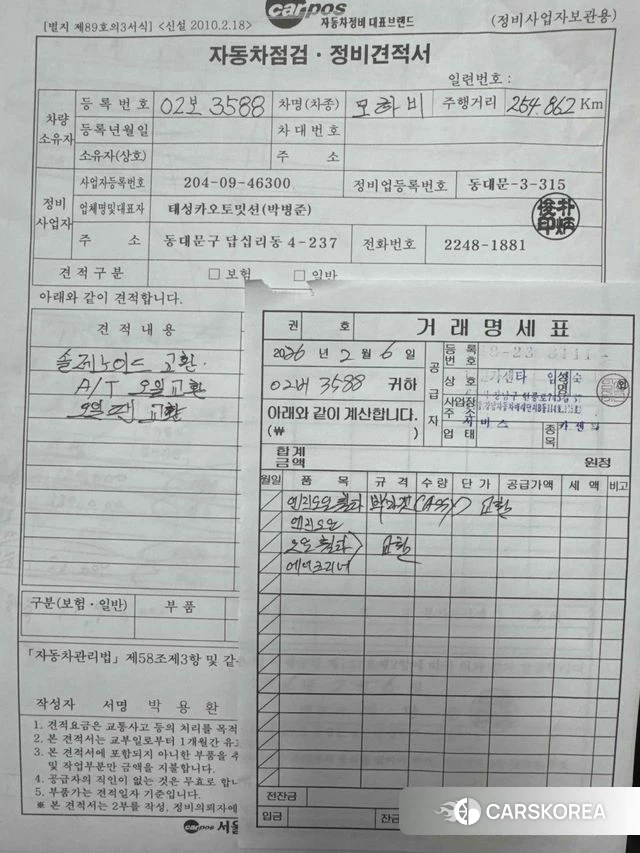 [별지 제89호의3서식] <신설 2010.2.18>
carpos
자동차정비 대표브랜드
(정비사업자보관용)
자동차점검 · 정비견적서
일련번호 :
차량
소유자
등록번호 02보 3588 차명(차종) 모하비 주행거리 254.862 Km
등록년월일 차대번호
소유자(상호) 주 소
정비
사업자
사업자등록번호 204-09-46300 정비업등록번호 동대문-3-315
업체명및대표자 태성카오토밋션(박병준)
주 소 동대문구 답십리동 4-237 전화번호 2248-1881
견적구분 □ 보험 □ 일반
아래와 같이 견적합니다.
견적내용
솔레노이드 교환.
A/T 오일교환
오일팬 교환
구분(보험·일반) 부품
「자동차관리법」 제58조제3항 및 같은
작성자 서명 박용환
1. 견적요금은 교통사고 등의 처리를 목적
2. 본 견적서는 교부일로부터 1개월간 유
3. 본 견적서에 포함되지 아니한 부품을 추
및 작업부분만 금액을 지불합니다.
4. 공급자의 직인이 없는 것은 무효로 합니
5. 부품가는 견적일자 기준입니다.
※ 본 견적서는 2부를 작성, 정비의뢰자에
carpos 서울
권 호 거래명세표
2026 년 2 월 6 일
02버 3588 귀하
아래와 같이 계산합니다.
(₩ )
공급자
등록번호
상호 카센타 성명
사업장주소
업태 서비스 종목 카센타
합계금액 원정
월일 품목 규격 수량 단가 공급가액 세액 비고
엔진오일휠타 (ASSY) 교환
엔진오일
오일휠타 교환
에어크리너
전잔금
입금 잔금
CARSKOREA